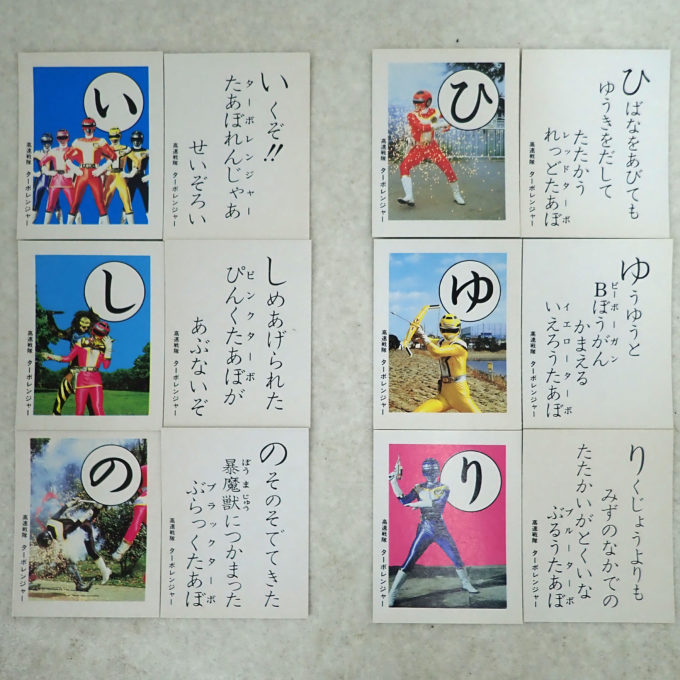 い
高速戦隊 ターボレンジャー
いくぞ!!
ターボレンジャー
たあぼれんじゃあ
せいぞろい
ひ
高速戦隊 ターボレンジャー
ひばなをあびても
ゆうきをだして
たたかう
レッドターボ
れっどたあぼ
し
高速戦隊 ターボレンジャー
しめあげられた
ピンクターボ
ぴんくたあぼが
あぶないぞ
ゆ
高速戦隊 ターボレンジャー
ゆうゆうと
ビーボーガン
Bぼうがん
かまえる
イエローターボ
いえろうたあぼ
の
高速戦隊 ターボレンジャー
のそのそでてきた
ぼうまじゅう
暴魔獣につかまった
ブラックターボ
ぶらっくたあぼ
り
高速戦隊 ターボレンジャー
りくじょうよりも
みずのなかでの
たたかいがとくいな
ブルーターボ
ぶるうたあぼ